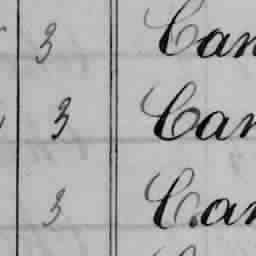 3 Can
3 Can
3 Can